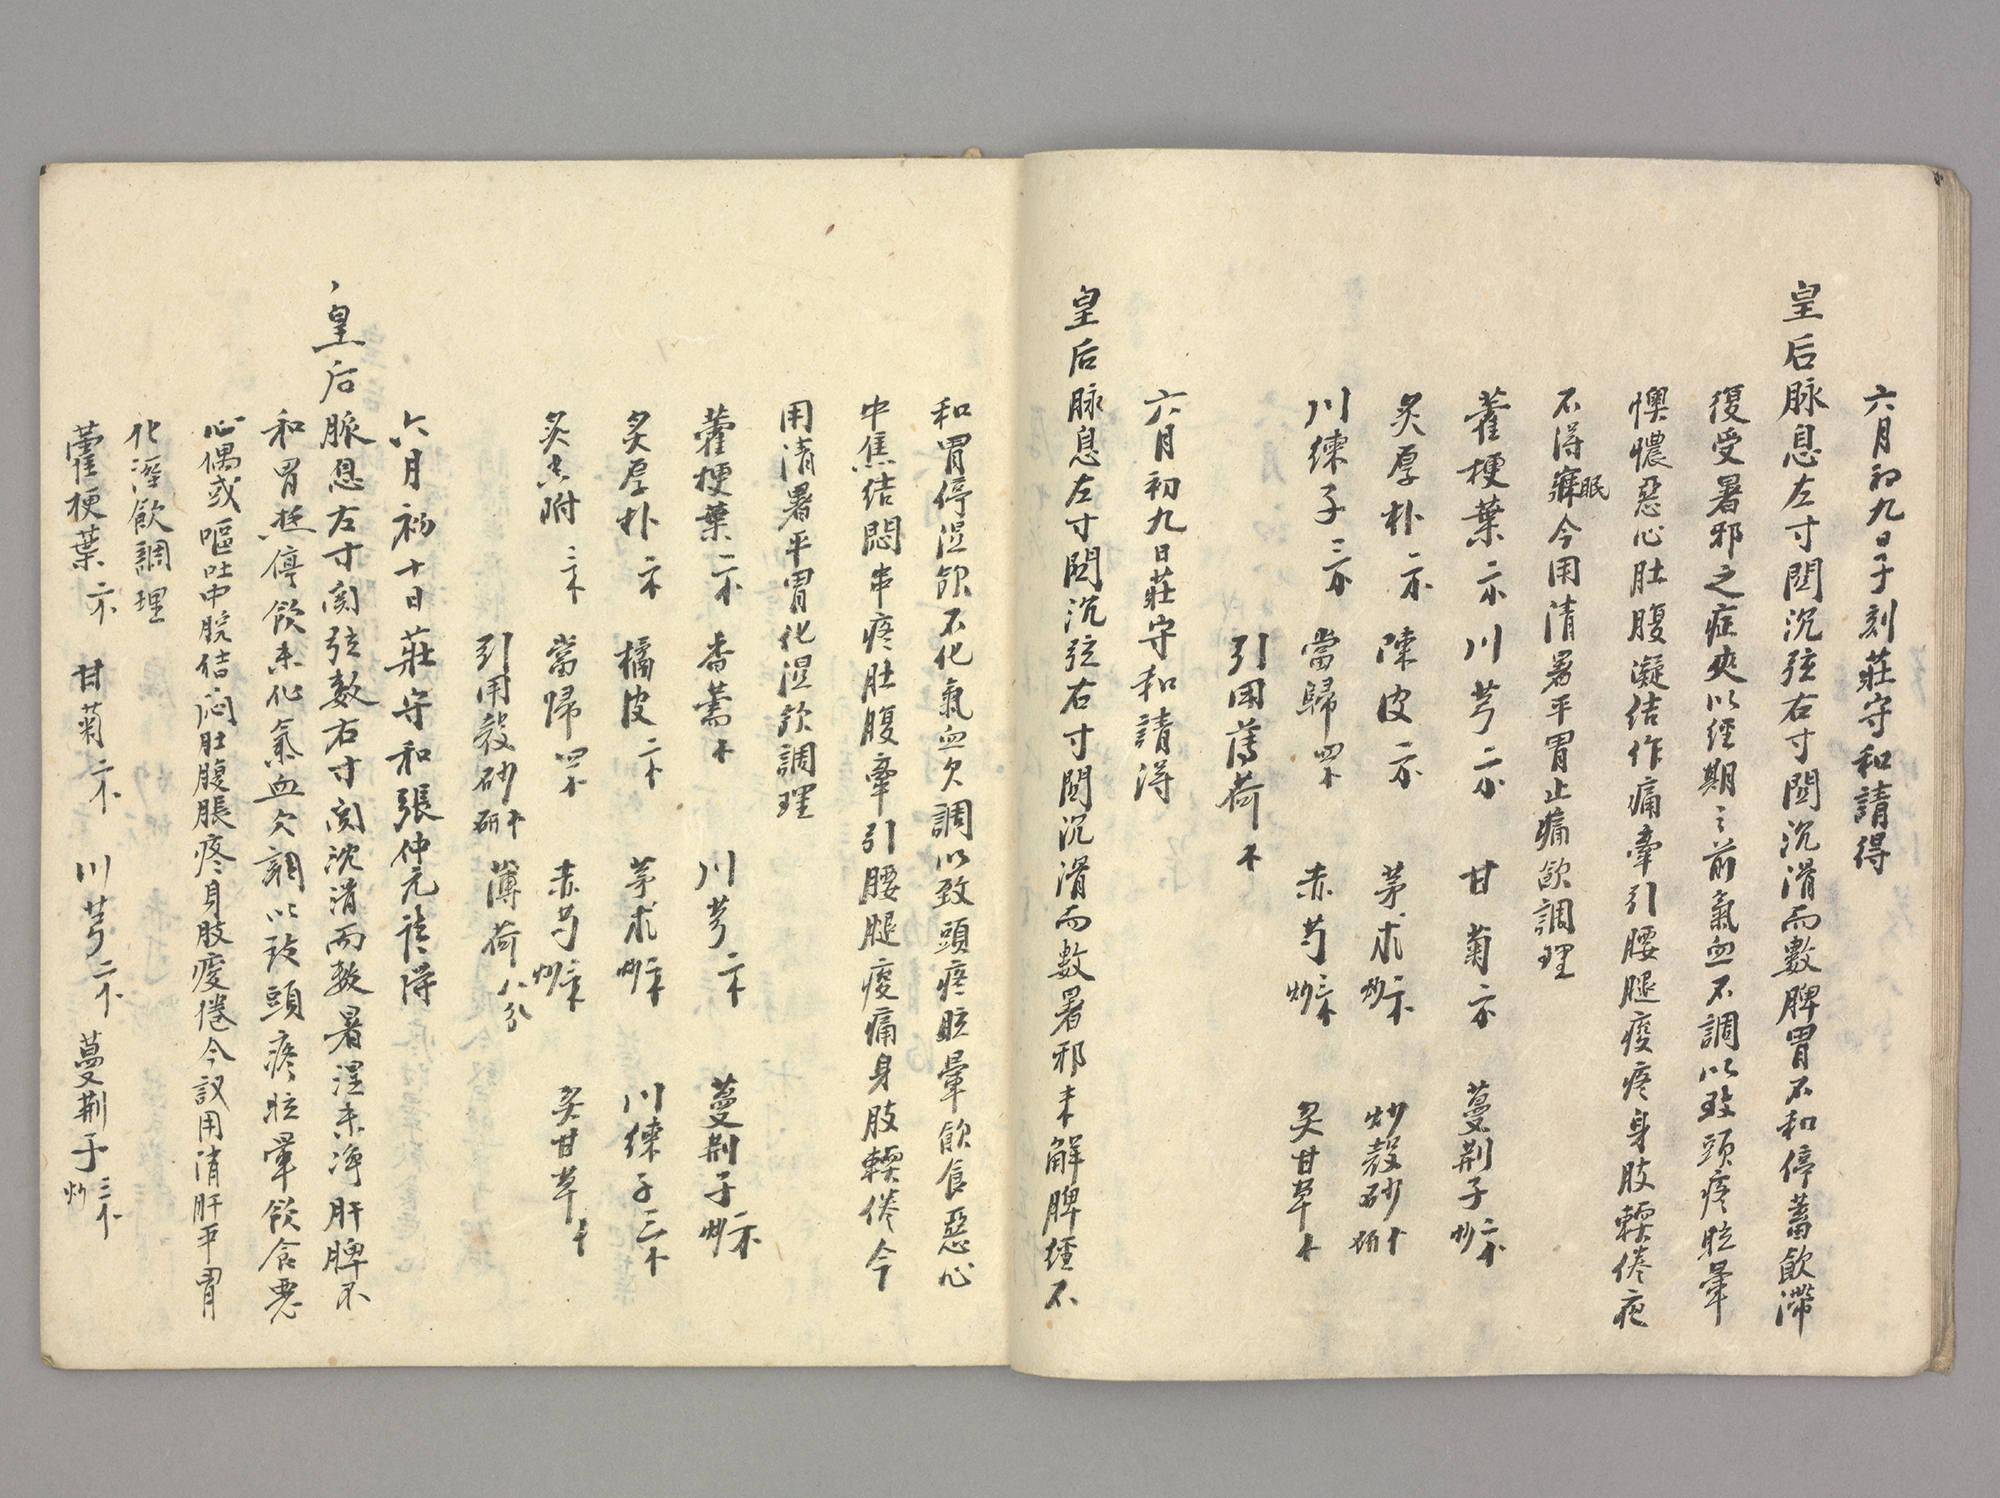 六月初九日子刻莊守和請得
皇后脉息左寸関沉弦右寸関沉滑而數脾胃不和停蓄飲滯
復受暑邪之症夾以經期之前氣血不調以致頭疼眩暈
懊憹惡心肚腹凝结作痛牽引腰腿痠疼身肢輭倦夜
不得寐眠今用清暑平胃止痛飲調理
藿梗葉二
川芎二
甘菊二
蔓荆子二炒
炙厚朴二
陳皮二
茅术二炒
炒榖砂研
川練子三
當歸四
赤芍三炒
炙甘草
引用薄荷
六月初九日莊守和請得
皇后脉息左寸関沉弦右寸関沉滑而數暑邪未解脾經不
和胃停湿飲不化氣血欠調以致頭疼眩暈飲食惡心
中焦结悶串疼肚腹牽引腰腿痠痛身肢輭倦今
用清暑平胃化湿飲調理
藿梗葉二
香薷
川芎二
蔓荆子二炒
炙厚朴二
橘皮二
茅术二炒
川練子三
炙香附三
當歸四
赤芍三炒
炙甘草
引用榖砂研
薄荷八分
六月初十日莊守和張仲元請得
皇后脈息左寸関弦數右寸関沈滑而數暑湿未淨肝脾不
和胃經停飲未化氣血欠調以致頭疼眩暈飲食惡
心偶或嘔吐中脘结悶肚腹脹疼身肢痠倦今議用清肝平胃
化溼飲調理
藿梗葉二
甘菊二
川芎二
蔓荆子三炒